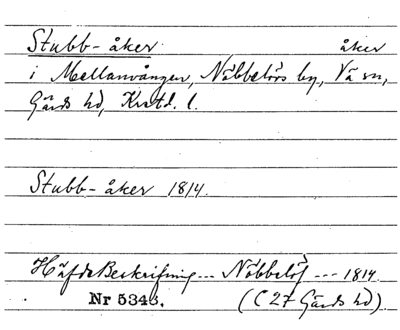 Stubb-åker åker
i Mellanvången, Nöbbelövs by, Vä sn,
Gärds hd, Krstd. l.
Stubb-åker 1814.
Häfde Beskrifning... Nöbbelöf --- 1814.
Nr 5343. (C 27 Gärds hd).